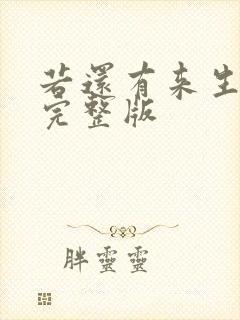 若還有来生
完整版
胖靈靈